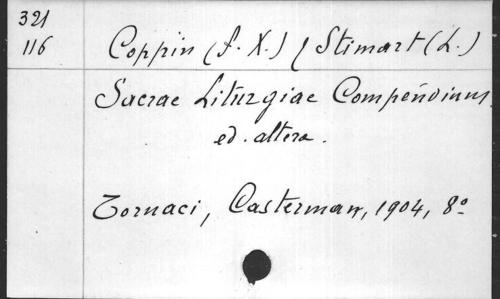 321
116
Coppin (J. X.) / Stimart (L.)
Sacrae Liturgiae Compendium
ed. altera.
Tornaci, Casterman, 1904, 8º